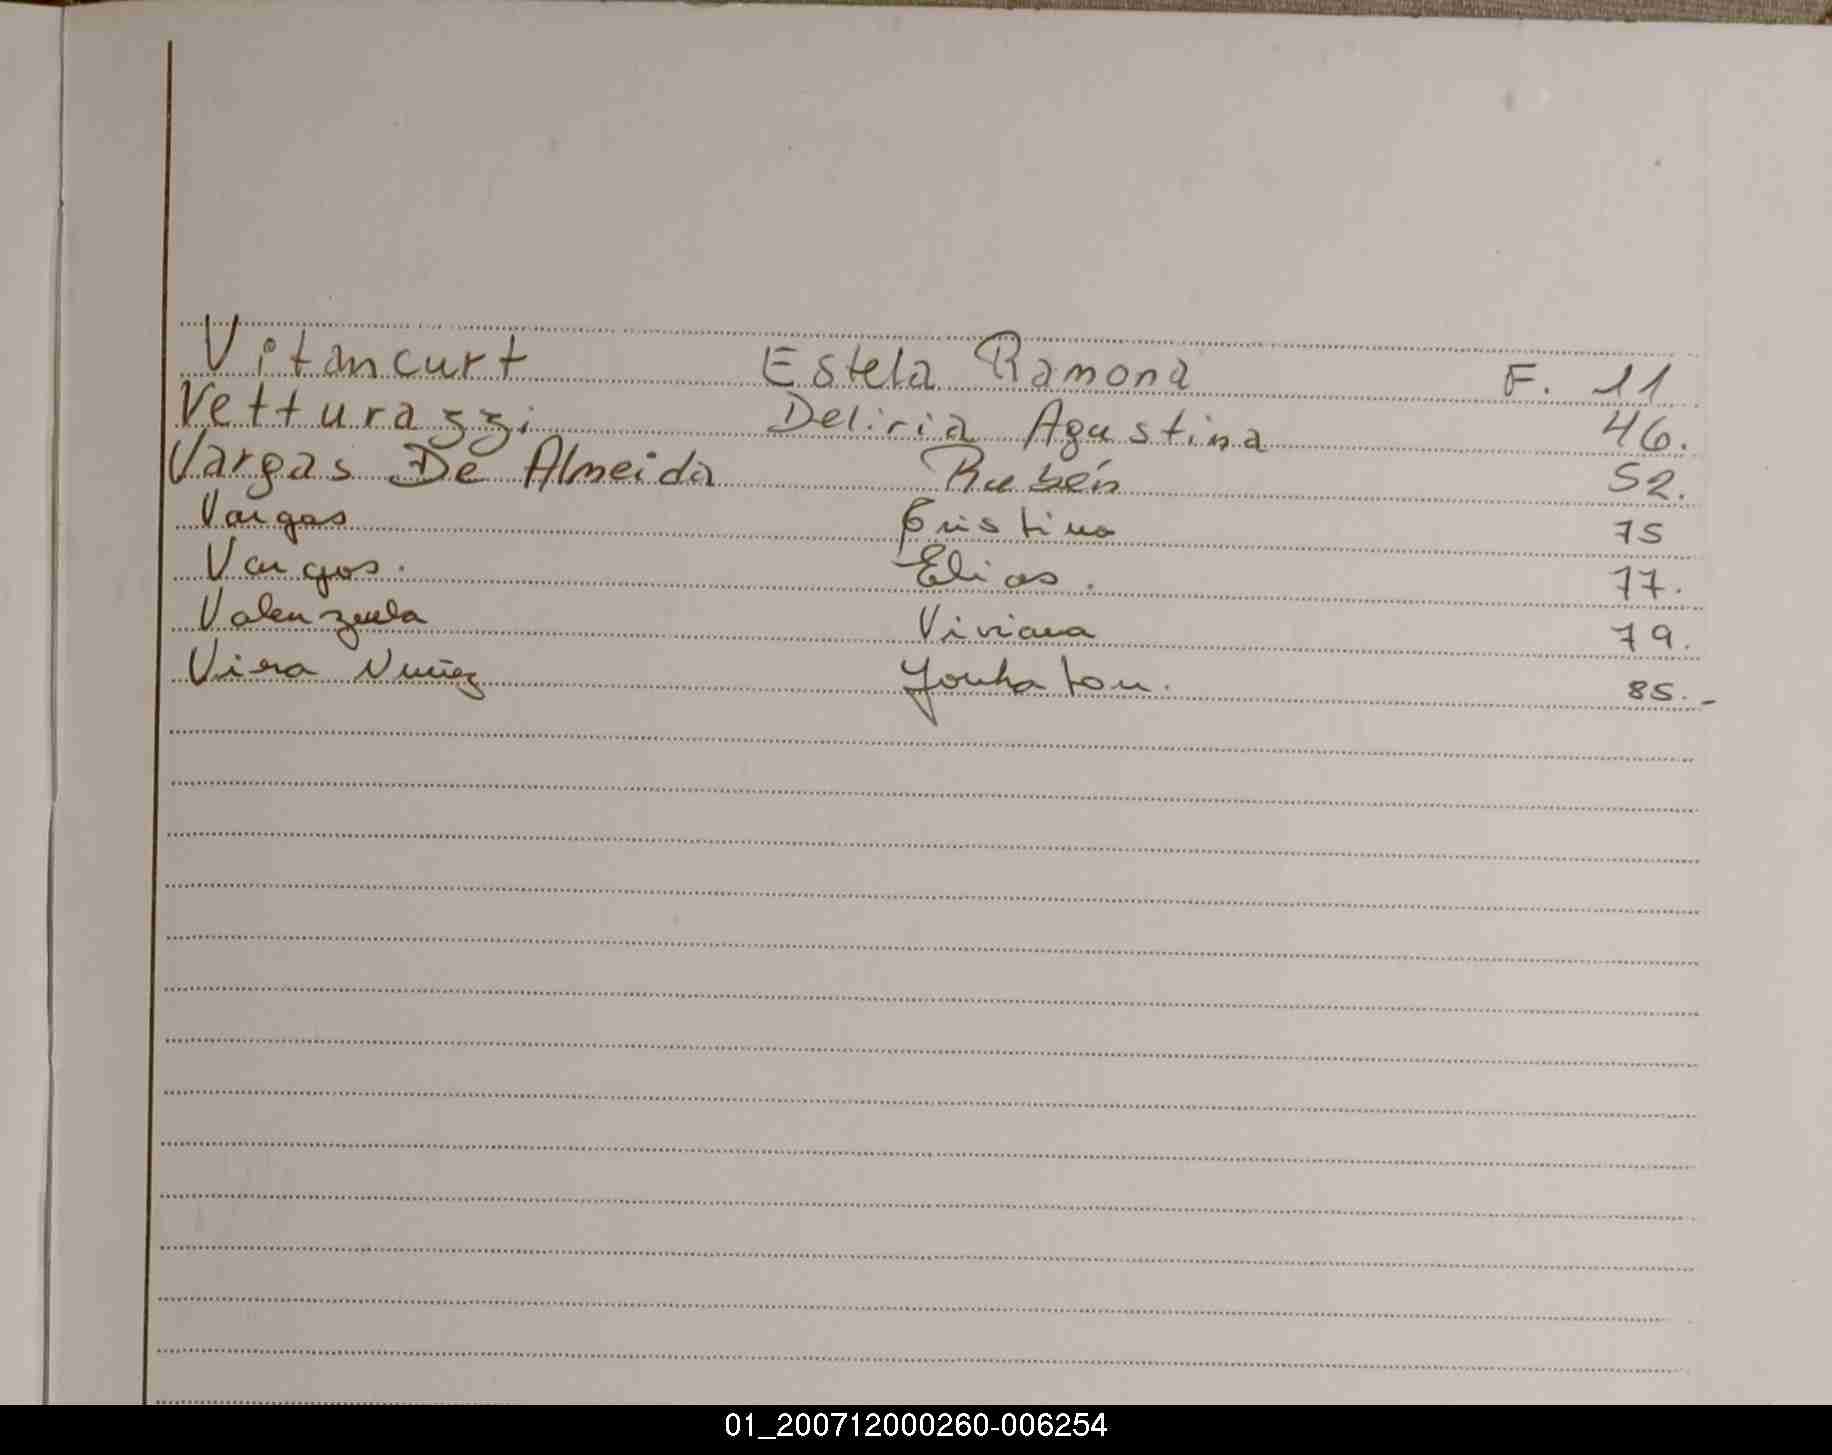 Vitancurt Estela Ramona F. 11
Vetturazzi Deliria Agustina 46.
Vargas De Almeida Rubén 52.
Vargas Cristina 75
Vargas. Elias. 77.
Valenzuela Viviana 79.
Viera Nuñez Jonhaton. 85.-
01_200712000260-006254